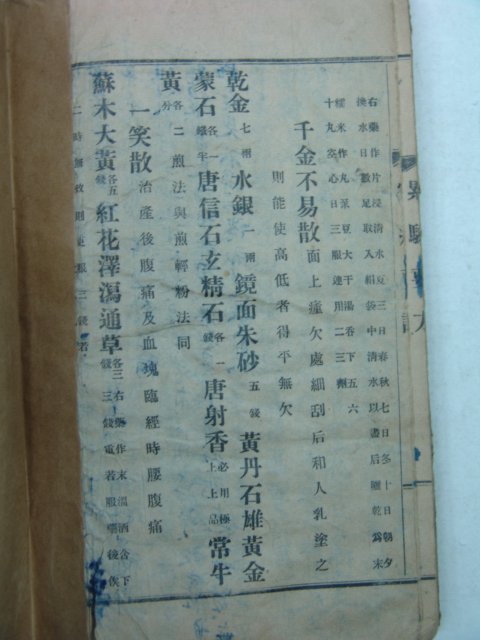 右藥作片浸淸水夏三日春秋七日冬十日朝夕
換水日數足取入絹袋中淸水以晝后曬乾爲末
糯米作丸菉豆大干湯呑下五六
十丸空心日三服連用二三劑
千金不易散面上瘇欠處細刮后和人乳塗之
則能使高低者得平無欠
乾金七兩水銀一兩鏡面朱砂五錢黃丹石雄黃金
蒙石各一錢半唐信石玄精石各一錢唐射香必用極上上品常牛
黃各二分煎法與煎輕粉法同
一笑散治產後腹痛及血塊臨經時腰腹痛
蘇木大黃各五錢紅花澤瀉通草各三錢右藥作末溫酒含下
三錢重若服藥後俟
二時無效則更服三錢若